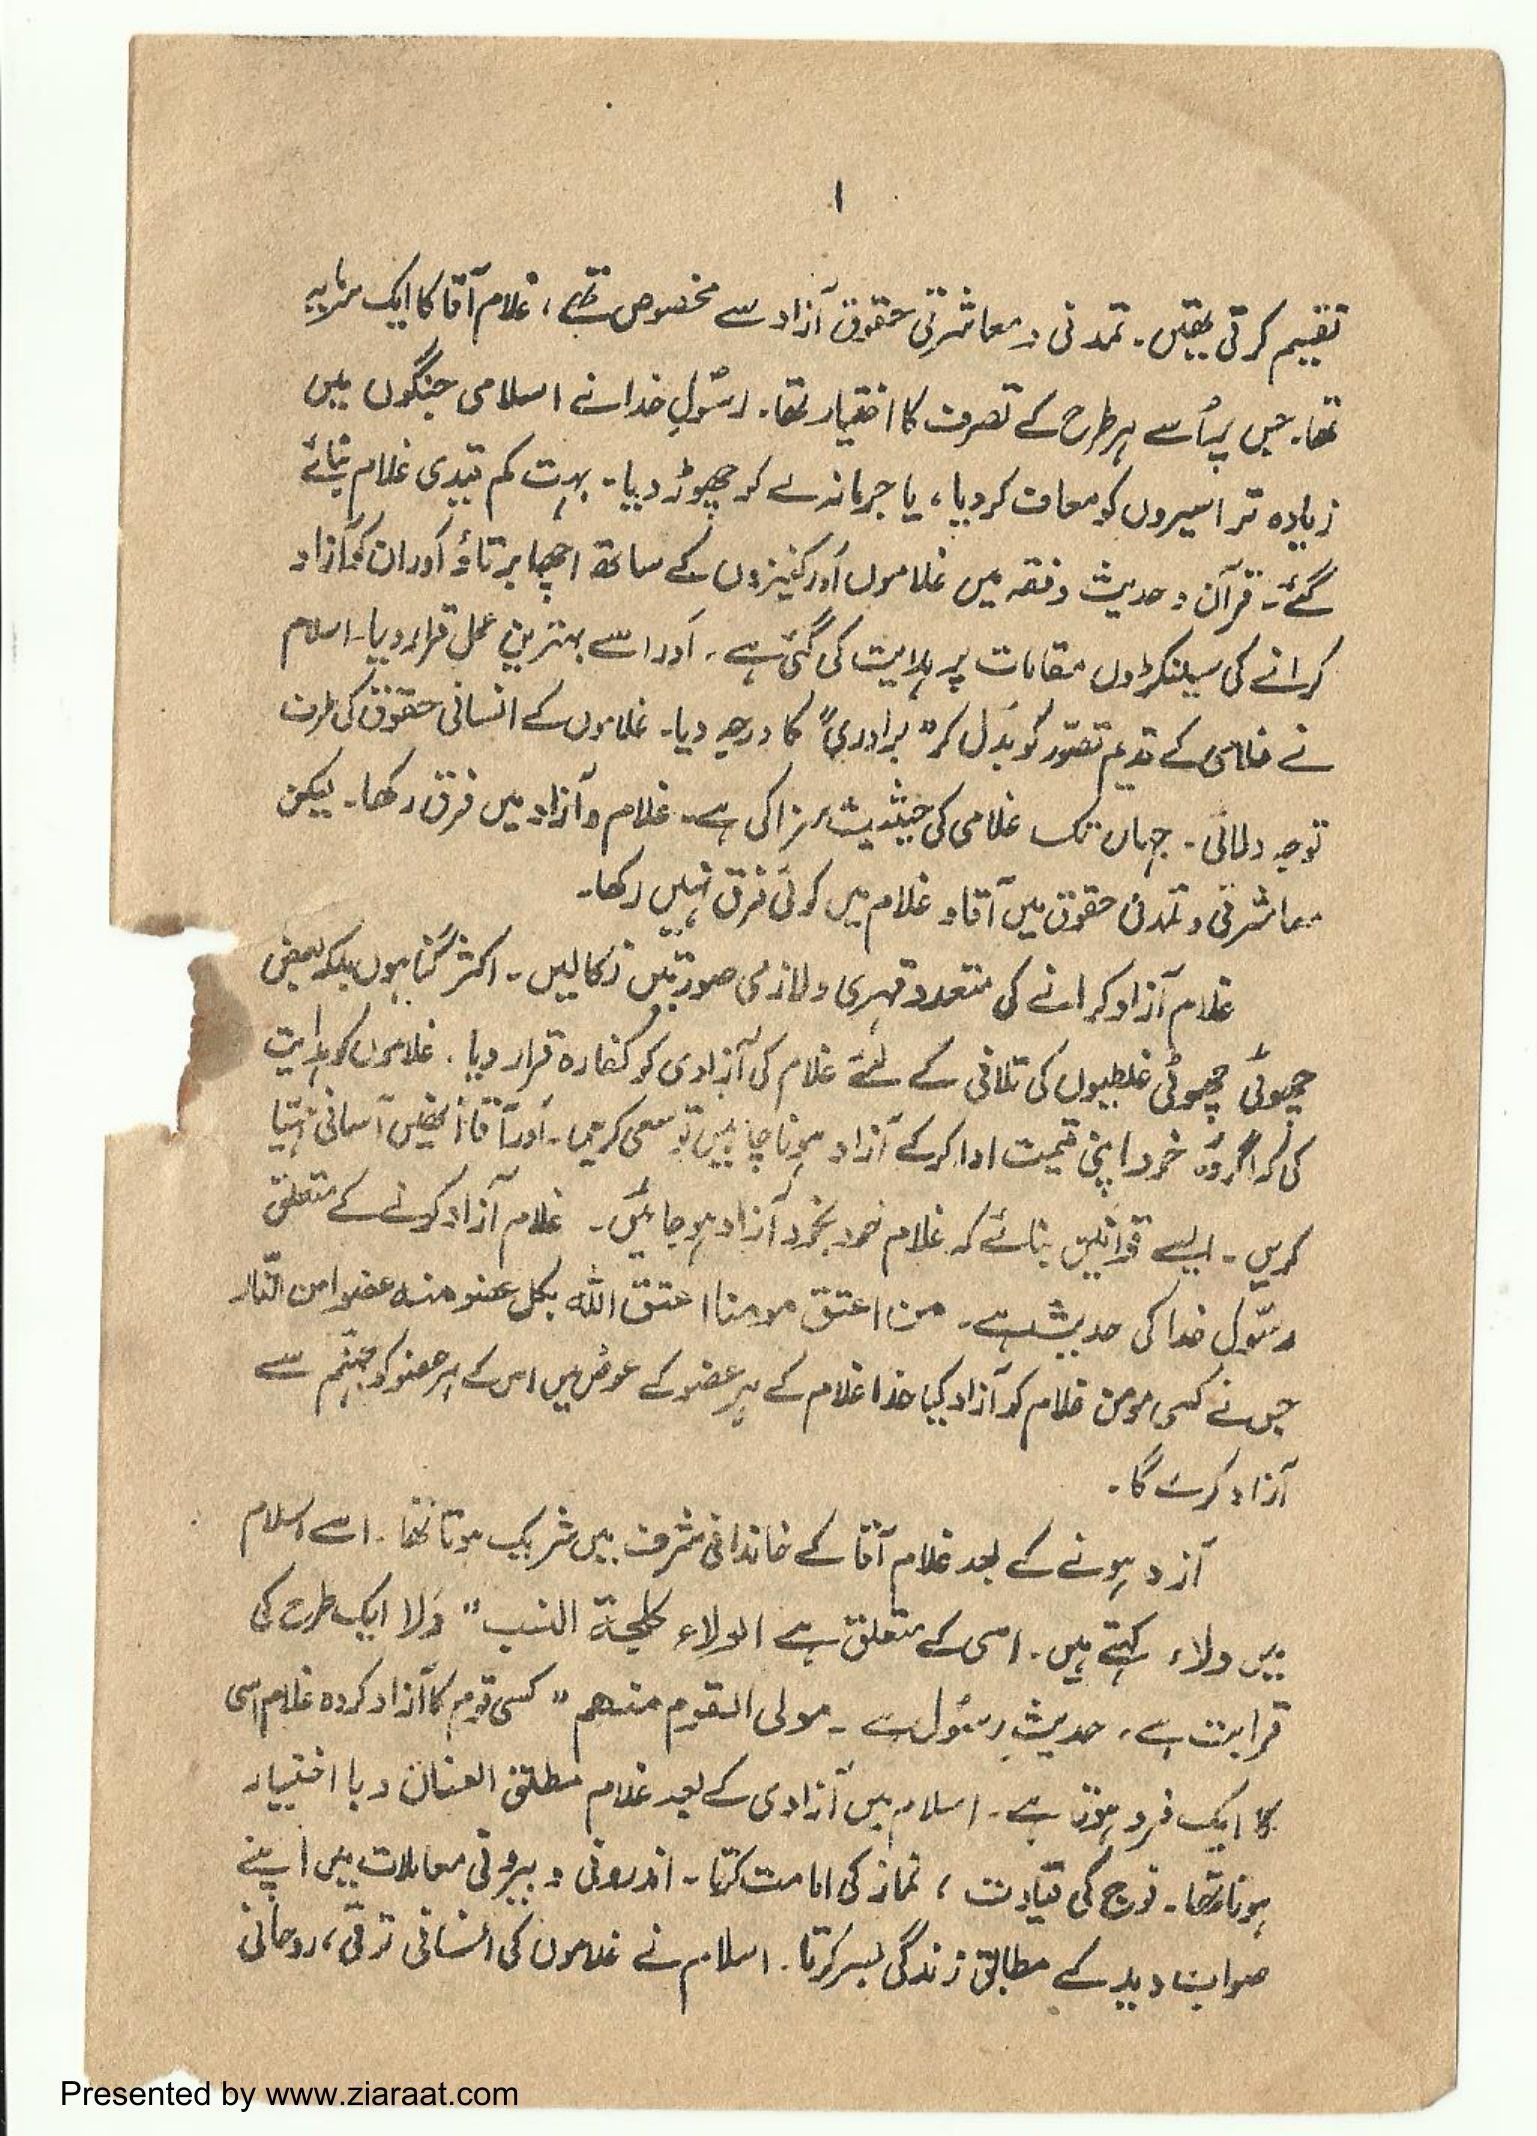 ۱
تقسیم کرتی تھیں۔ تمدنی و معاشرتی حقوق آزاد سے مخصوص تھے، غلام آقا کا ایک سرمایہ
تھا۔ جس پر اُسے ہر طرح کے تصرف کا اختیار تھا۔ رسُولِ خدا نے اسلامی جنگوں میں
زیادہ تر اسیروں کو معاف کر دیا، یا جرمانہ لے کر چھوڑ دیا۔ بہت کم قیدی غلام بنائے
گئے۔ قرآن و حدیث و فقہ میں غلاموں اَور کنیزوں کے ساتھ اچھا برتاؤ اَور ان کو آزاد
کرانے کی سینکڑوں مقامات پر ہدایت کی گئی ہے۔ اَور اسے بہترین عمل قرار دیا۔ اسلام
نے غلامی کے قدیم تصوّر کو بَدل کر "برادری" کا درجہ دیا۔ غلاموں کے انسانی حقوق کی طرف
توجہ دلائی۔ جہاں تک غلامی کی حیثیت سزا کی ہے۔ غلام و آزاد میں فرق رکھا۔ لیکن
معاشرتی و تمدنی حقوق میں آقا و غلام میں کوئی فرق نہیں رکھا۔
غلام آزاد کرانے کی متعدد قہری و لازمی صورتیں نکالیں۔ اکثر گناہوں بلکہ بعض
چھوٹی چھوٹی غلطیوں کی تلافی کے لئے غلام کی آزادی کو کفارہ قرار دیا۔ غلاموں کو ہدایت
کی کہ اگر وہ خود اپنی قیمت ادا کر کے آزاد ہونا چاہیں تو سعی کریں۔ اَور آقا انھیں آسانی مہیّا
کریں۔ ایسے قوانین بنائے کہ غلام خود بخود آزاد ہو جائیں۔ غلام آزاد کرنے کے متعلق
رسُول خدا کی حدیث ہے۔ من اعتق مومنا اعتق اللہ بکل عضو منہ عضوا من النّار
جس نے کسی مومن غلام کو آزاد کیا خدا غلام کے ہر عضو کے عوض میں اس کے ہر عضو کو جہنّم سے
آزاد کرے گا۔
آزد ہونے کے بعد غلام آقا کے خاندانی شرف میں شریک ہوتا تھا۔ اسے اسلام
میں ولاء کہتے ہیں۔ اسی کے متعلق ہے الولاء کلحمۃ النسب" وَلا ایک طرح کی
قرابت ہے، حدیثِ رسُول ہے۔ مولی القوم منھم" کسی قوم کا آزاد کردہ غلام اسی
کا ایک فرد ہوتا ہے۔ اسلام میں آزادی کے بعد غلام مطلق العنان و با اختیار
ہوتا تھا۔ فوج کی قیادت، نماز کی امامت کرتا۔ اندرونی و بیرونی معاملات میں اپنے
صواب دید کے مطابق زندگی بسر کرتا۔ اسلام نے غلاموں کی انسانی ترقی، روحانی
Presented by www.ziaraat.com